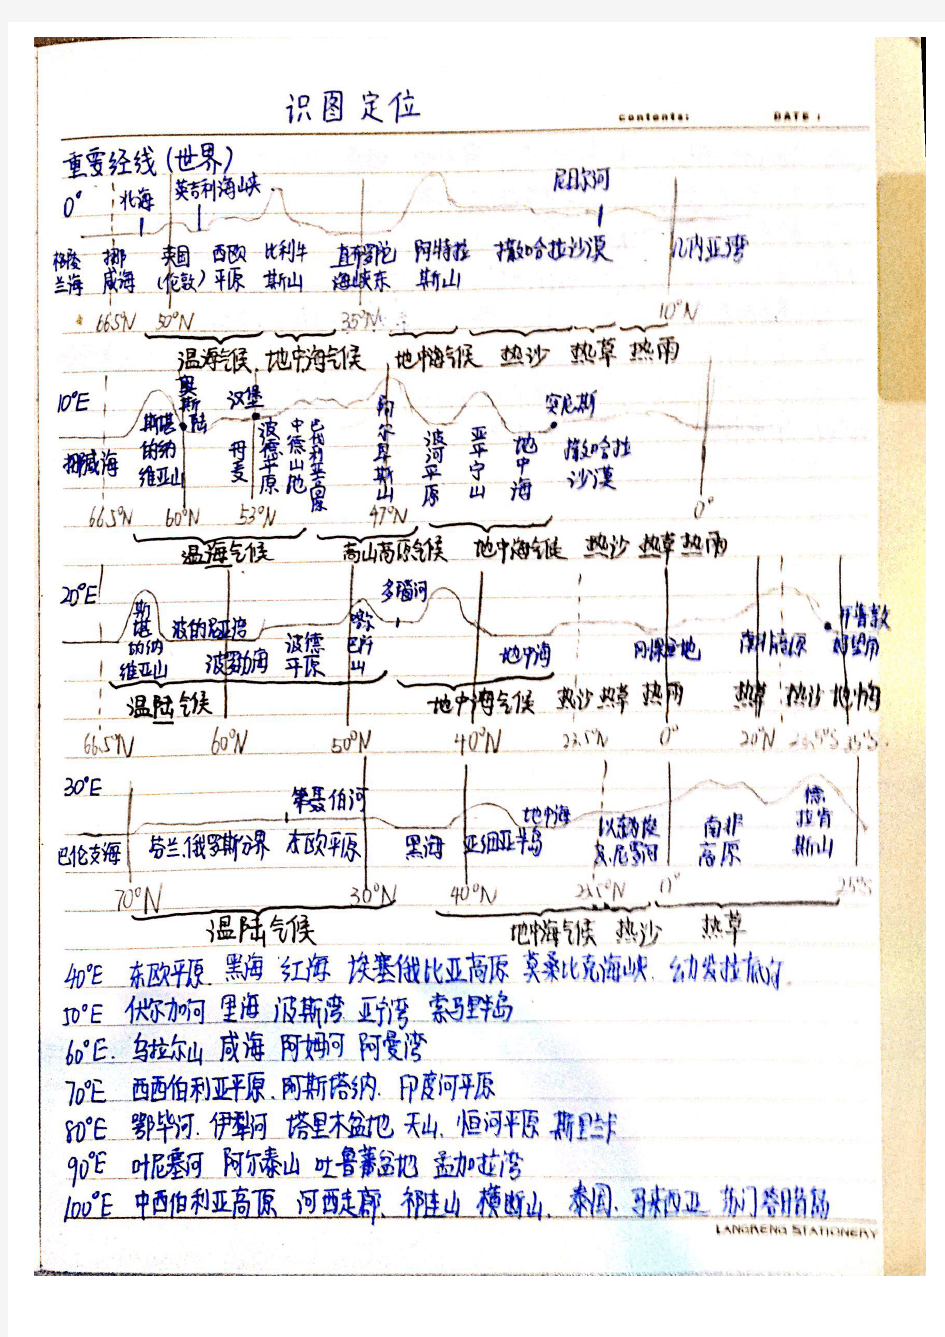 识图定位
contents:
DATE:
重要经线(世界)
0° 北海 英吉利海峡 尼日尔河
格陵兰海 挪威海 英国(伦敦) 西欧平原 比利牛斯山 直布罗陀海峡东 阿特拉斯山 撒哈拉沙漠 几内亚湾
66.5°N 50°N 35°N 10°N
温海气候 地中海气候 地中海气候 热沙 热草 热雨
10°E 奥斯陆 汉堡 突尼斯
挪威海 斯堪的纳维亚山 丹麦 波德平原 中德山地 巴伐利亚高原 阿尔卑斯山 波河平原 亚平宁山 地中海 撒哈拉沙漠
66.5°N 60°N 53°N 47°N 0°
温海气候 高山高原气候 地中海气候 热沙 热草 热雨
20°E 多瑙河
斯堪的纳维亚山 波的尼亚湾 波罗的海 波德平原 喀尔巴阡山 地中海 刚果盆地 南非高原 开普敦 好望角
温陆气候 地中海气候 热沙 热草 热雨 热草 热沙 地中海
66.5°N 60°N 50°N 40°N 23.5°N 0° 20°N 23.5°S 35°S
30°E 第聂伯河 地中海
巴伦支海 芬兰、俄罗斯分界 东欧平原 黑海 小亚细亚半岛 南非高原 德拉肯斯山
70°N 30°N 40°N 23.5°N 0° 25°S
温陆气候 地中海气候 热沙 热草
40°E 东欧平原 黑海 红海 埃塞俄比亚高原 莫桑比克海峡
50°E 伏尔加河 里海 波斯湾 亚丁湾 索马里半岛
60°E. 乌拉尔山 咸海 阿姆河 阿曼湾
70°E 西西伯利亚平原、阿斯塔纳、印度河平原
80°E 鄂毕河、伊犁河 塔里木盆地 天山、恒河平原 斯里兰卡
90°E 叶尼塞河 阿尔泰山 吐鲁番盆地 孟加拉湾
100°E 中西伯利亚高原 河西走廊、祁连山 横断山、泰国、马来西亚 苏门答腊岛
LANGRENG STATIONERY